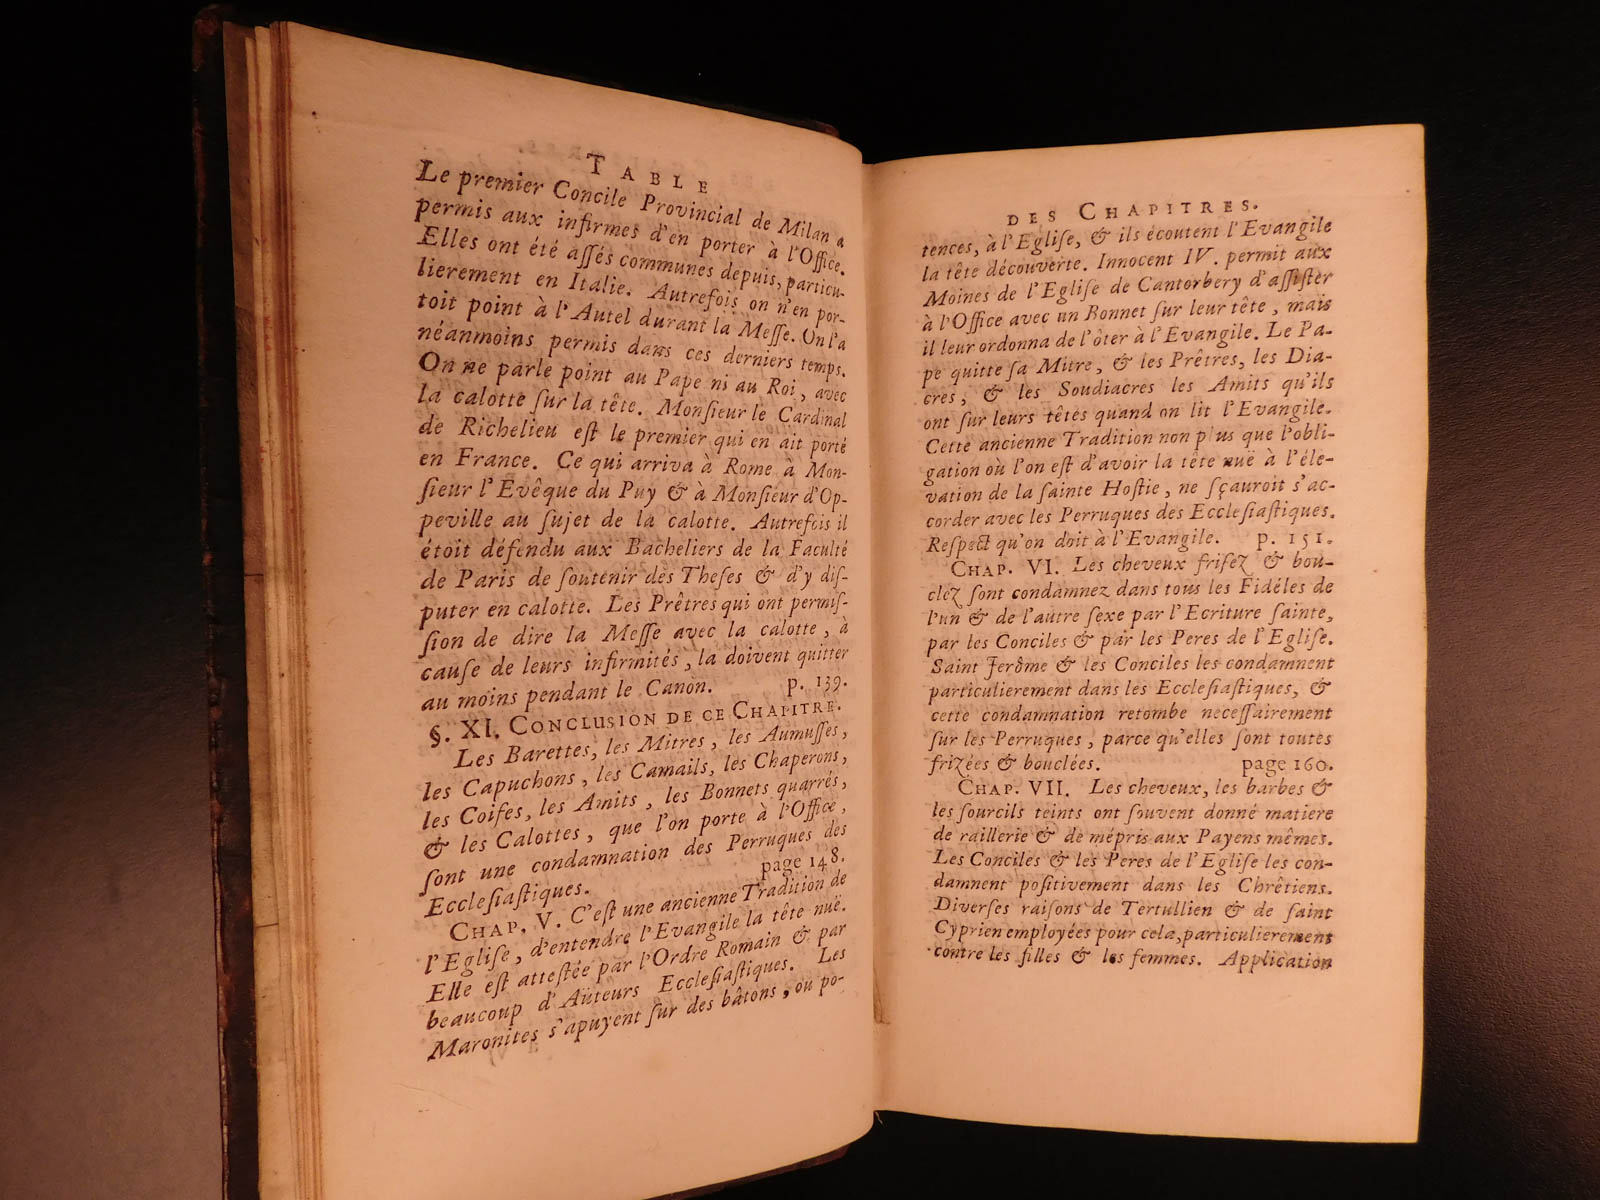 TABLE
Le premier Concile Provincial de Milan a
permis aux infirmes d'en porter à l'Office.
Elles ont été aſſés communes depuis, particu-
lierement en Italie. Autrefois on n'en por-
toit point à l'Autel durant la Meſſe. On l'a
néanmoins permis dans ces derniers temps.
On ne parle point au Pape ni au Roi, avec
la calotte ſur la tête. Monſieur le Cardinal
de Richelieu eſt le premier qui en ait porté
en France. Ce qui arriva à Rome à Mon-
ſieur l'Evêque du Puy & à Monſieur d'Op-
peville au ſujet de la calotte. Autrefois il
étoit défendu aux Bacheliers de la Faculté
de Paris de ſoutenir des Theſes & d'y diſ-
puter en calotte. Les Prêtres qui ont permiſ-
ſion de dire la Meſſe avec la calotte, à
cauſe de leurs infirmités, la doivent quitter
au moins pendant le Canon. p. 139.
§. XI. CONCLUSION DE CE CHAPITRE.
Les Barettes, les Mitres, les Aumuſſes,
les Capuchons, les Camails, les Chaperons,
les Coifes, les Amits, les Bonnets quarrés,
& les Calottes, que l'on porte à l'Office,
ſont une condamnation des Perruques des
Eccleſiaſtiques. page 148.
CHAP. V. C'eſt une ancienne Tradition de
l'Egliſe, d'entendre l'Evangile la tête nuë.
Elle eſt atteſtée par l'Ordre Romain & par
beaucoup d'Auteurs Eccleſiaſtiques. Les
Maronites s'apuyent ſur des bâtons, ou po-
DES CHAPITRES.
tences, à l'Egliſe, & ils écoutent l'Evangile
la tête découverte. Innocent IV. permit aux
Moines de l'Egliſe de Cantorbery d'aſſiſter
à l'Office avec un Bonnet ſur leur tête, mais
il leur ordonna de l'ôter à l'Evangile. Le Pa-
pe quitte ſa Mitre, & les Prêtres, les Dia-
cres, & les Soudiacres les Amits qu'ils
ont ſur leurs têtes quand on lit l'Evangile.
Cette ancienne Tradition non plus que l'obli-
gation où l'on eſt d'avoir la tête nuë à l'éle-
vation de la ſainte Hoſtie, ne ſçauroit s'ac-
corder avec les Perruques des Eccleſiaſtiques.
Reſpect qu'on doit à l'Evangile. p. 151.
CHAP. VI. Les cheveux friſez & bou-
clez ſont condamnez dans tous les Fidéles de
l'un & de l'autre sexe par l'Ecriture ſainte,
par les Conciles & par les Peres de l'Egliſe.
Saint Jerôme & les Conciles les condamnent
particulierement dans les Eccleſiaſtiques, &
cette condamnation retombe neceſſairement
ſur les Perruques, parce qu'elles ſont toutes
frizées & bouclées. page 160.
CHAP. VII. Les cheveux, les barbes &
les ſourcils teints ont ſouvent donné matiere
de raillerie & de mépris aux Payens mêmes.
Les Conciles & les Peres de l'Egliſe les con-
damnent poſitivement dans les Chrêtiens.
Diverſes raiſons de Tertullien & de ſaint
Cyprien employées pour cela, particulierement
contre les filles & les femmes. Application